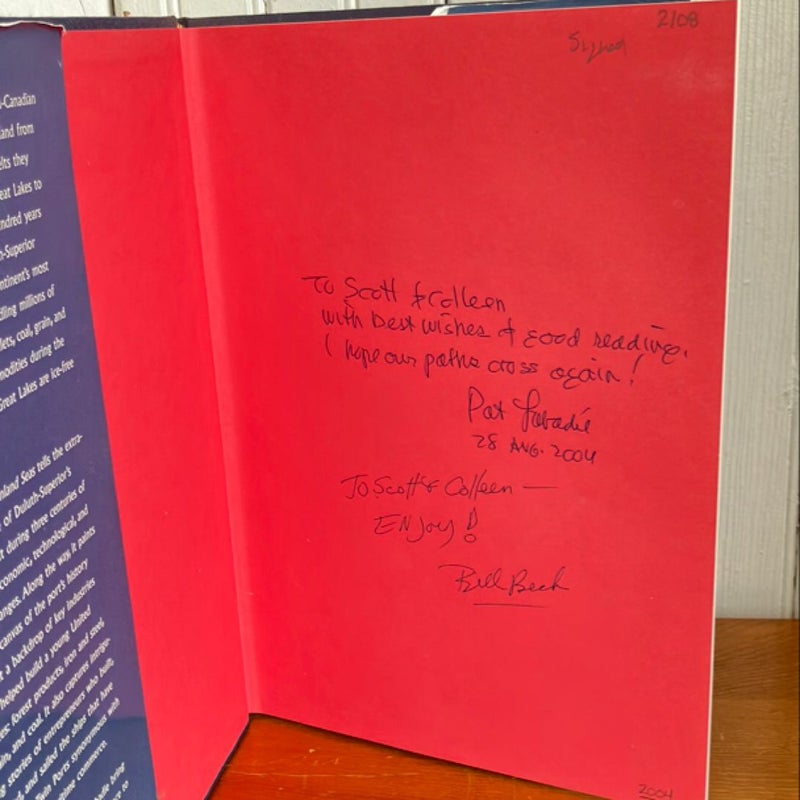 -Canadian
land from
elts they
eat Lakes to
ndred years
h-Superior
ntinent's most
dling millions of
lets, coal, grain, and
modities during the
Great Lakes are ice-free
nland Seas tells the extra-
of Duluth-Superior's
t during three centuries of
conomic, technological, and
anges. Along the way it paints
canvas of the port's history
t a backdrop of key industries
helped build a young United
es: forest products, iron and steel,
in, and coal. It also captures intrigu-
g stories of entrepreneurs who built,
d, and sailed the ships that have
Twin Ports synonymous with
time commerce.
adie bring
ce to
2/08
Signed
To Scott & Colleen
with best wishes & good reading.
I hope our paths cross again!
Pat Labadie
28 AUG. 2004
To Scott & Colleen —
ENJoy!
Bill Beck
2004